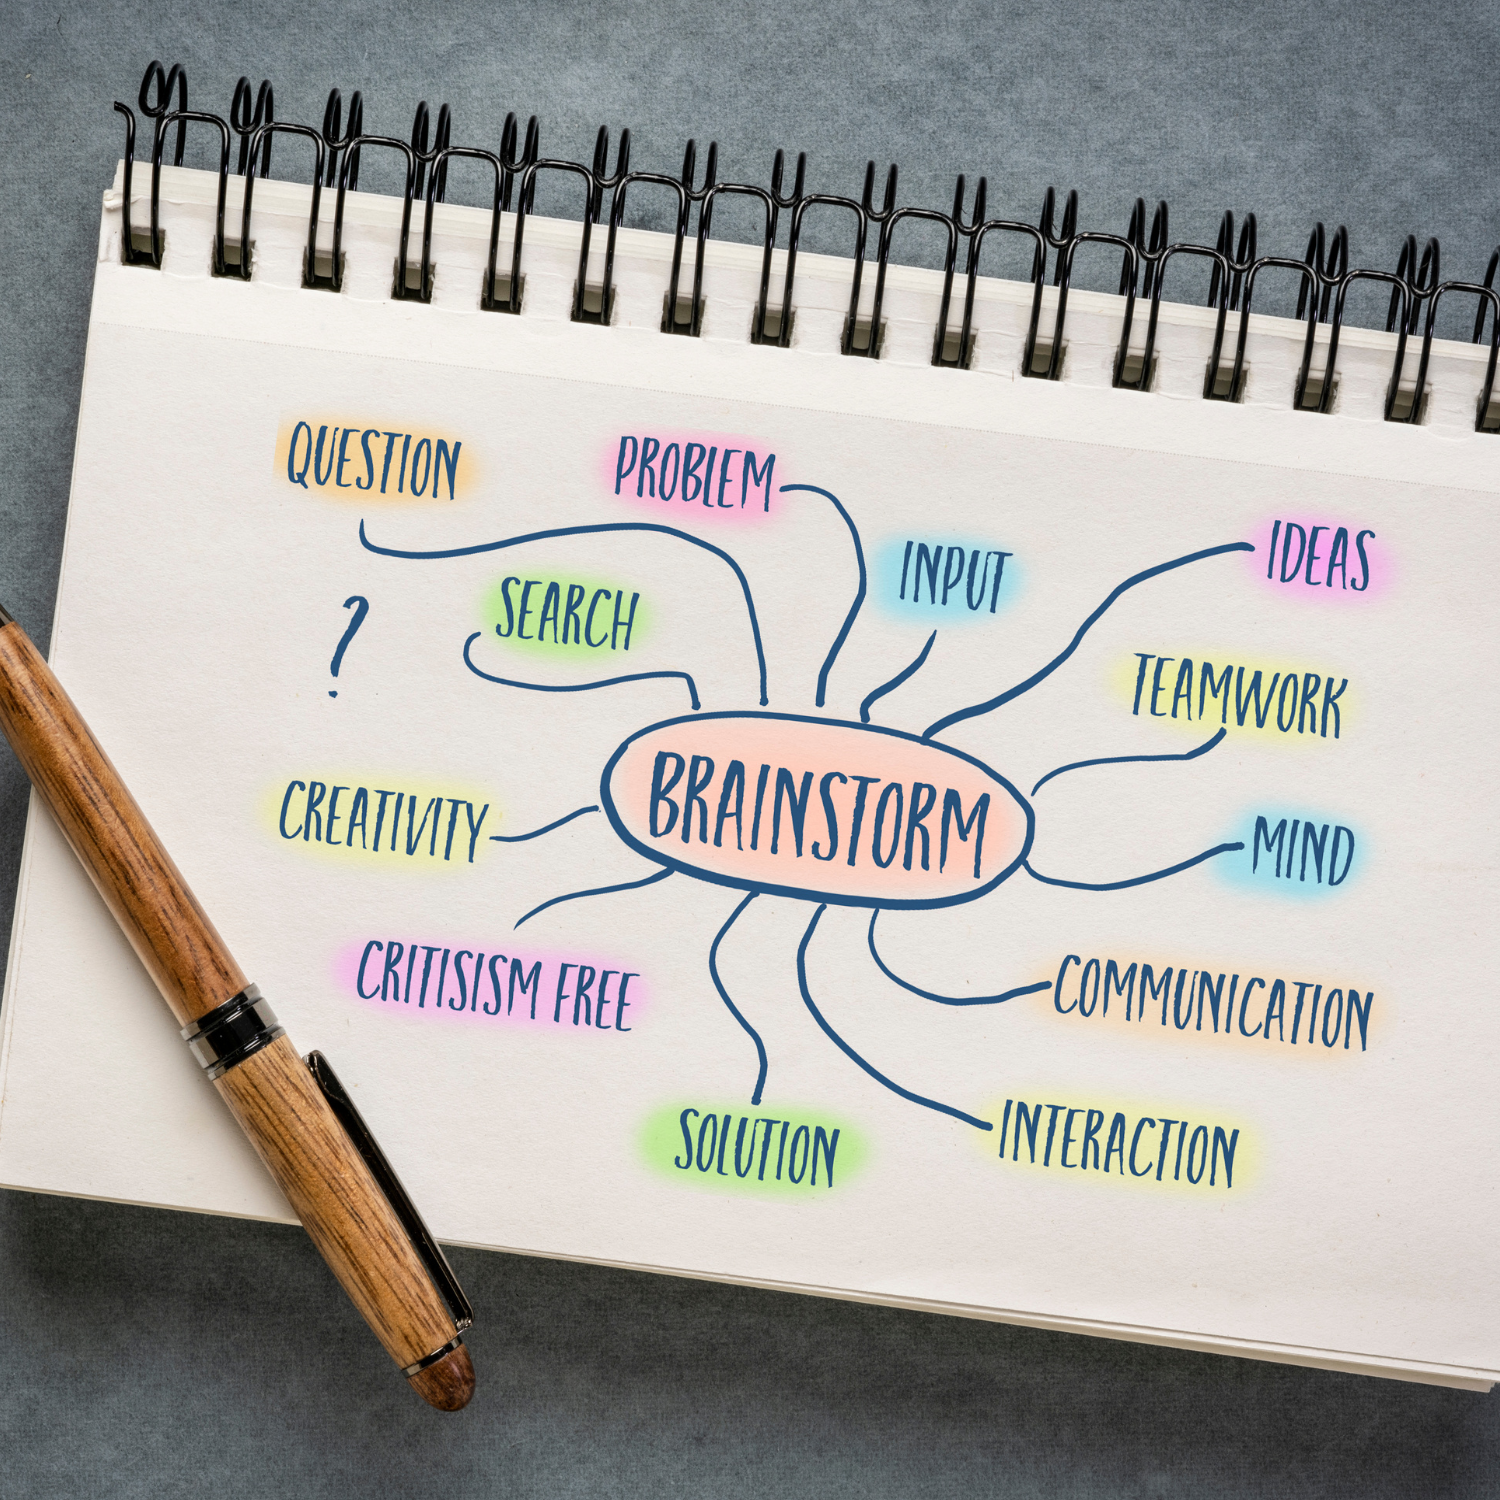 QUESTION
PROBLEM
INPUT
IDEAS
?
SEARCH
TEAMWORK
BRAINSTORM
CREATIVITY
MIND
CRITISISM FREE
COMMUNICATION
SOLUTION
INTERACTION